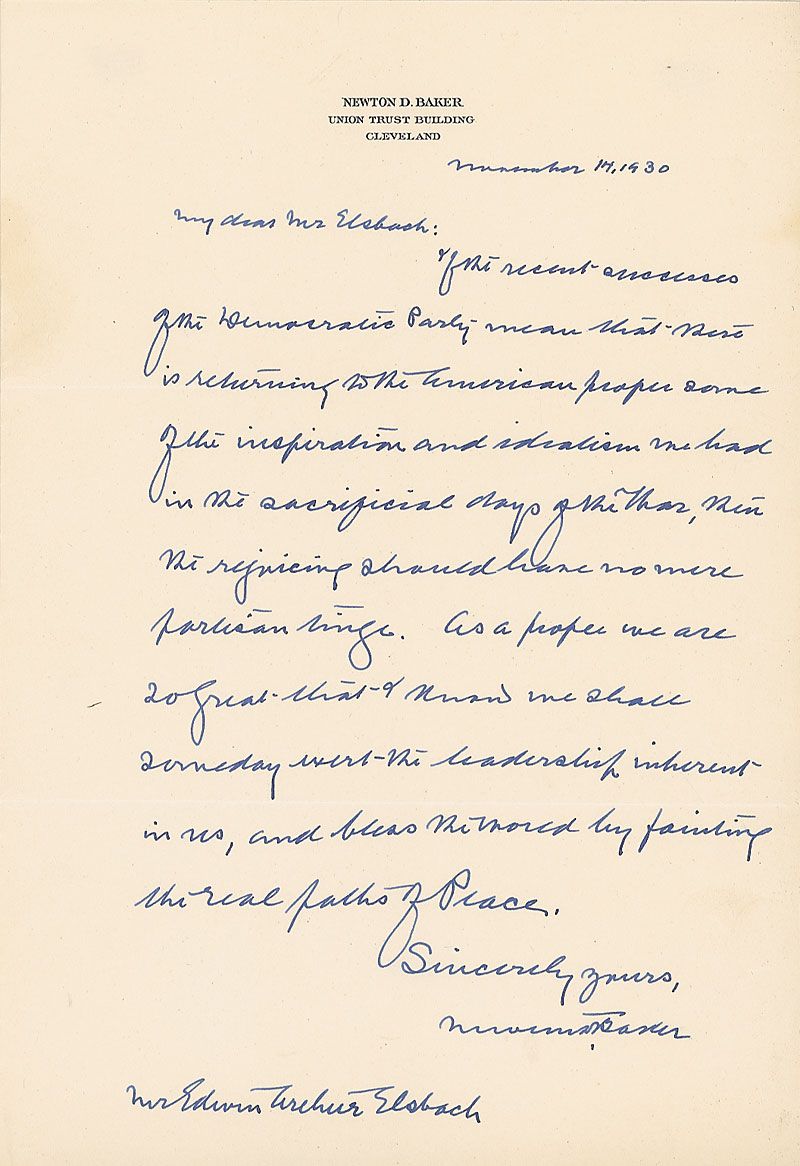 NEWTON D. BAKER
UNION TRUST BUILDING
CLEVELAND
November 14, 1930
My dear Mr Elsbach:
If the recent successes
of the Democratic Party mean that there
is returning to the American people some
of the inspiration and idealism we had
in the sacrificial days of the War, then
the rejoicing should have no mere
partisan tinge. As a people we are
so great that I know we shall
someday exert the leadership inherent
in us, and bless the world by pointing
the real paths of Peace.
Sincerely yours,
Newton D. Baker
Mr Edwin Arthur Elsbach